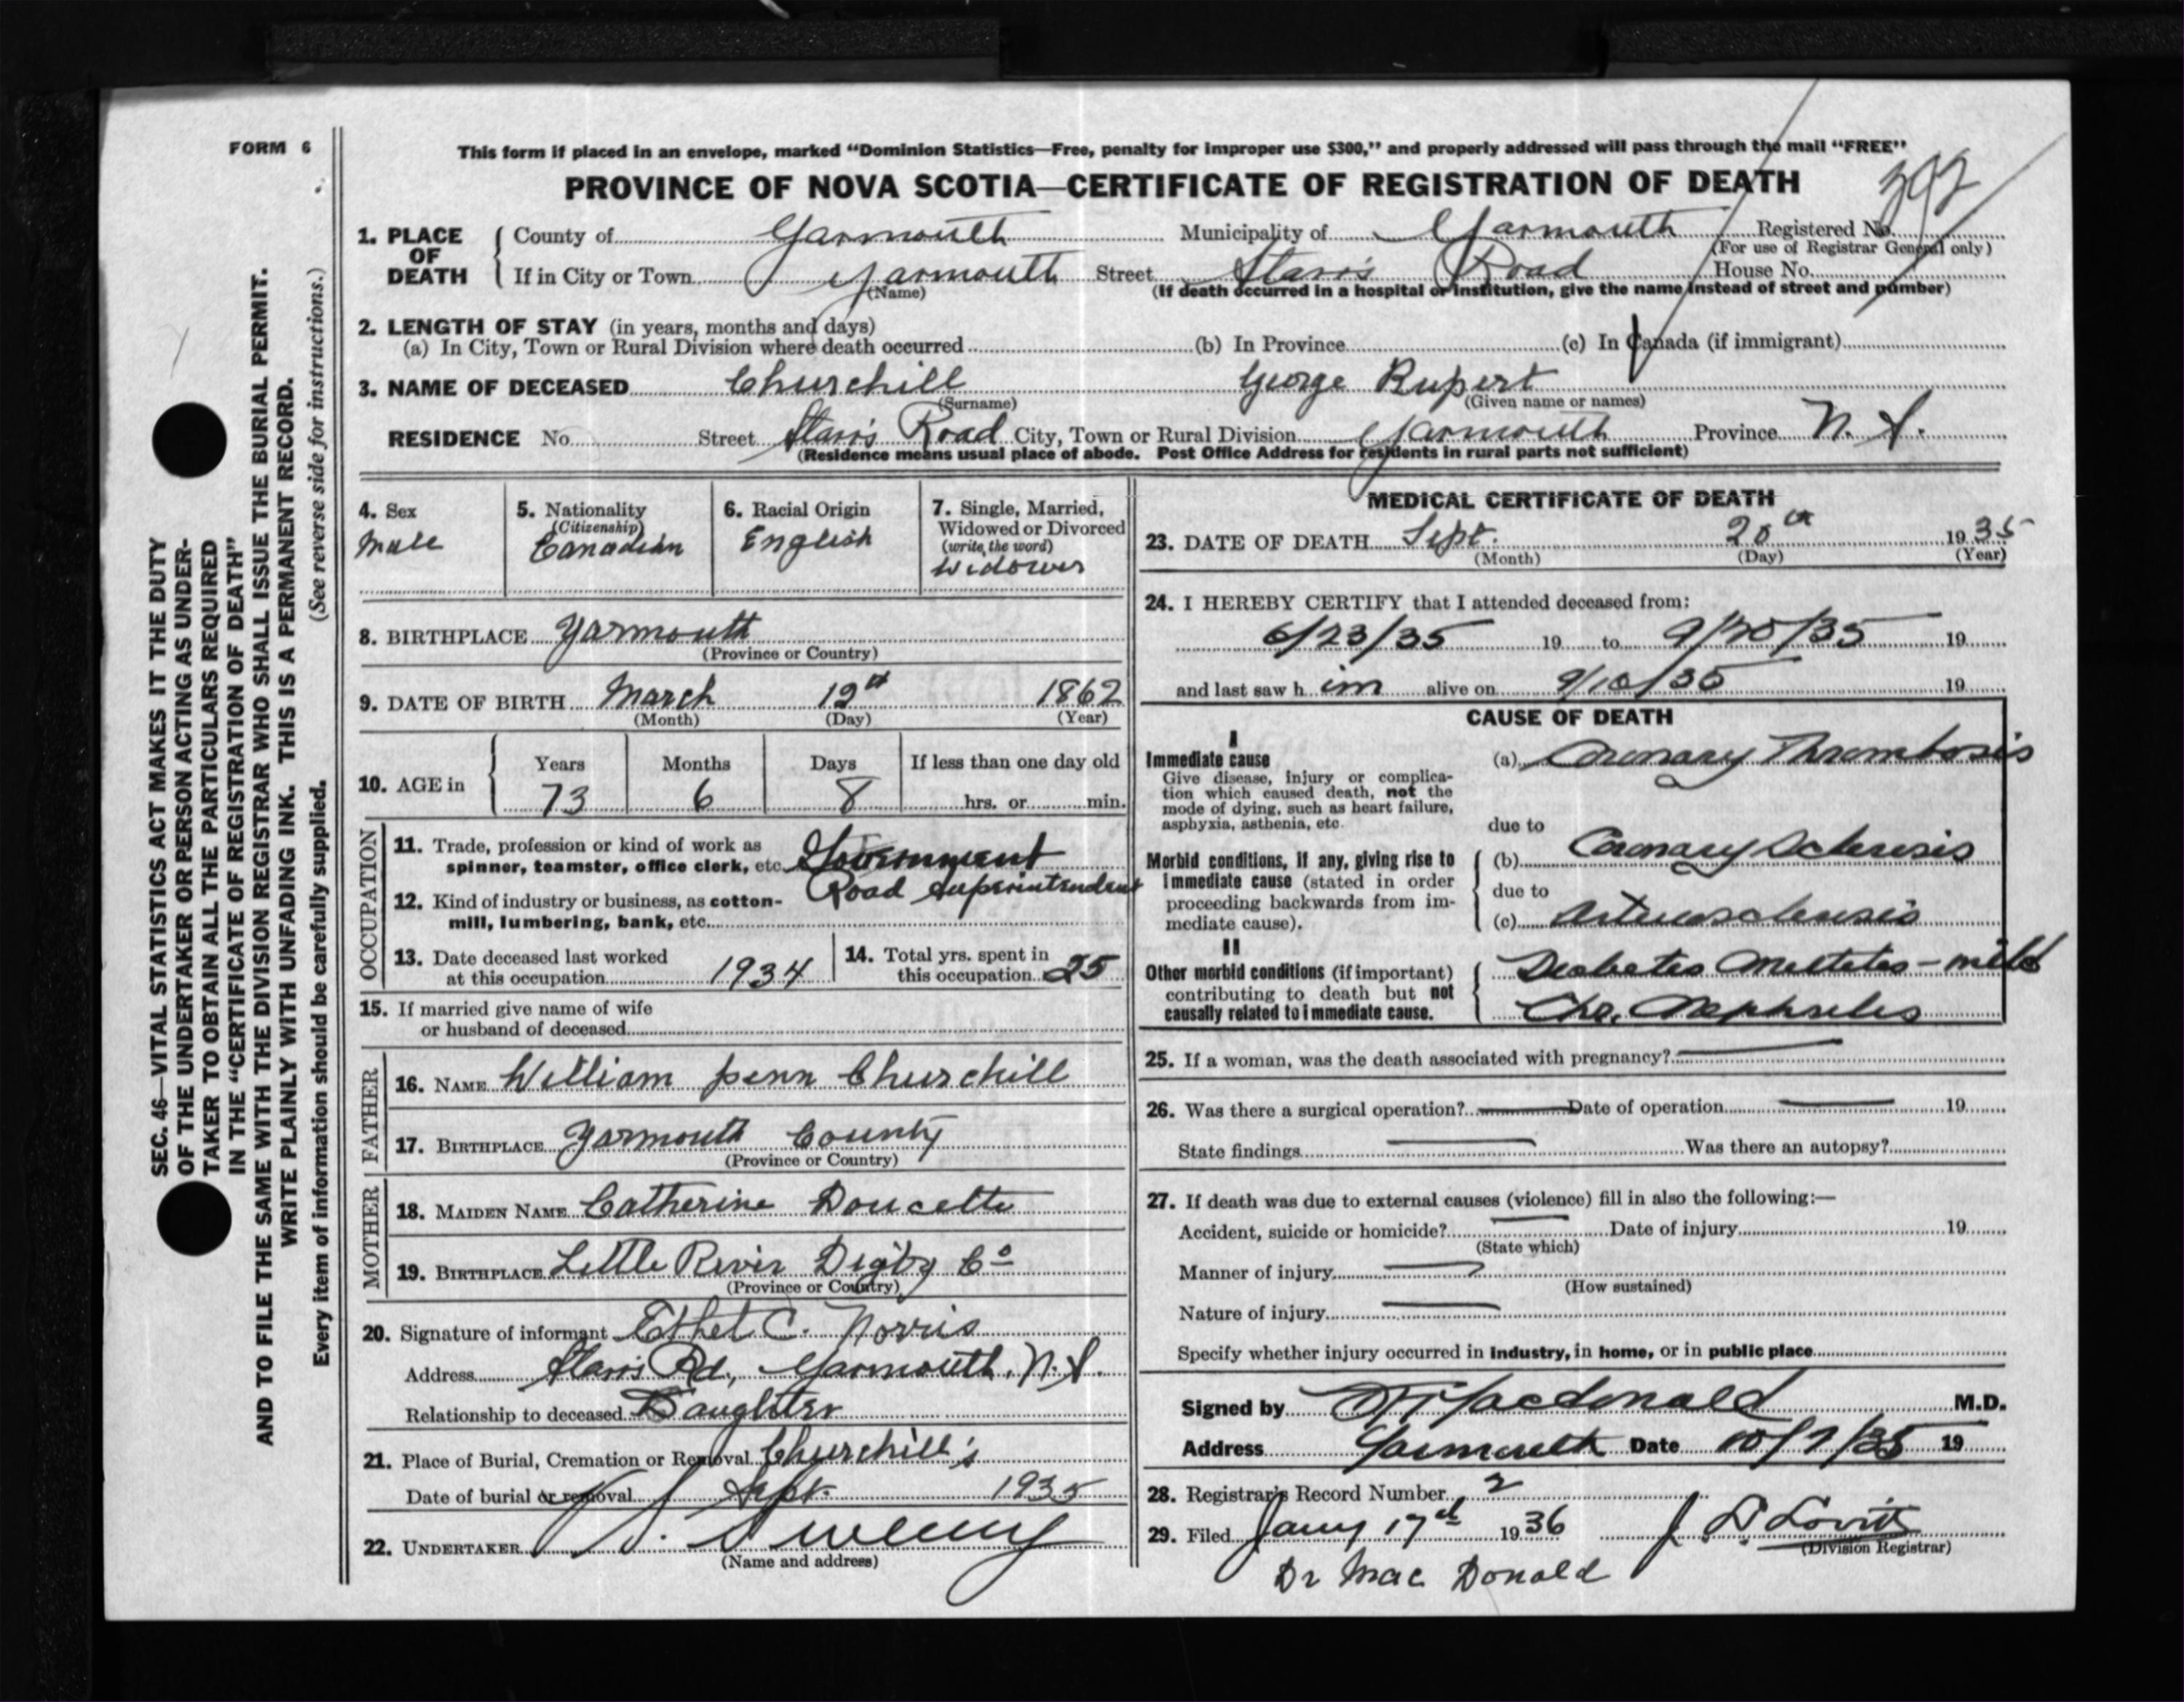 FORM 6
This form if placed in an envelope, marked “Dominion Statistics—Free, penalty for improper use $300,” and properly addressed will pass through the mail “FREE”
PROVINCE OF NOVA SCOTIA—CERTIFICATE OF REGISTRATION OF DEATH
392
1. PLACE OF DEATH { County of Yarmouth Municipality of Yarmouth Registered No.
(For use of Registrar General only)
If in City or Town Yarmouth Street Starrs Road House No.
(Name) (If death occurred in a hospital or institution, give the name instead of street and number)
2. LENGTH OF STAY (in years, months and days)
(a) In City, Town or Rural Division where death occurred (b) In Province (c) In Canada (if immigrant)
3. NAME OF DECEASED Churchill George Rupert
(Surname) (Given name or names)
RESIDENCE No. Street Starrs Road City, Town or Rural Division Yarmouth Province N. S.
(Residence means usual place of abode. Post Office Address for residents in rural parts not sufficient)
4. Sex
Male
5. Nationality
(Citizenship)
Canadian
6. Racial Origin
English
7. Single, Married,
Widowed or Divorced
(write the word)
Widower
8. BIRTHPLACE Yarmouth
(Province or Country)
9. DATE OF BIRTH March 12th 1862
(Month) (Day) (Year)
10. AGE in { Years Months Days If less than one day old
73 6 8 hrs. or min.
OCCUPATION
11. Trade, profession or kind of work as
spinner, teamster, office clerk, etc. Government
Road Superintendent
12. Kind of industry or business, as cotton-
mill, lumbering, bank, etc.
13. Date deceased last worked
at this occupation 1934
14. Total yrs. spent in
this occupation 25
15. If married give name of wife
or husband of deceased
FATHER
16. NAME William Penn Churchill
17. BIRTHPLACE Yarmouth County
(Province or Country)
MOTHER
18. MAIDEN NAME Catherine Doucette
19. BIRTHPLACE Little River Digby Co
(Province or Country)
20. Signature of informant Ethel C. Norris
Address Starrs Rd, Yarmouth, N.S.
Relationship to deceased Daughter
21. Place of Burial, Cremation or Removal Churchill's
Date of burial or removal Sept. 1935
22. UNDERTAKER V. S. Sweeny
(Name and address)
MEDICAL CERTIFICATE OF DEATH
23. DATE OF DEATH Sept. 20th 1935
(Month) (Day) (Year)
24. I HEREBY CERTIFY that I attended deceased from:
6/23/35 19 to 9/20/35 19
and last saw him alive on 9/10/35 19
CAUSE OF DEATH
I
Immediate cause
Give disease, injury or complica-
tion which caused death, not the
mode of dying, such as heart failure,
asphyxia, asthenia, etc.
(a) Coronary Thrombosis
due to
Morbid conditions, if any, giving rise to
immediate cause (stated in order
proceeding backwards from im-
mediate cause).
(b) Coronary Sclerosis
due to
(c) Arteriosclerosis
II
Other morbid conditions (if important)
contributing to death but not
causally related to immediate cause.
Diabetes Mellitus - mild
Chr. Nephritis
25. If a woman, was the death associated with pregnancy?
26. Was there a surgical operation? Date of operation 19
State findings Was there an autopsy?
27. If death was due to external causes (violence) fill in also the following:—
Accident, suicide or homicide? Date of injury 19
(State which)
Manner of injury
(How sustained)
Nature of injury
Specify whether injury occurred in industry, in home, or in public place
Signed by Macdonald M.D.
Address Yarmouth Date 10/7/35 19
28. Registrar's Record Number 2
29. Filed Jany 17th 1936 J. D. Lovitt
(Division Registrar)
Dr Mac Donald
SEC. 46—VITAL STATISTICS ACT MAKES IT THE DUTY
OF THE UNDERTAKER OR PERSON ACTING AS UNDER-
TAKER TO OBTAIN ALL THE PARTICULARS REQUIRED
IN THE “CERTIFICATE OF REGISTRATION OF DEATH”
AND TO FILE THE SAME WITH THE DIVISION REGISTRAR WHO SHALL ISSUE THE BURIAL PERMIT.
WRITE PLAINLY WITH UNFADING INK. THIS IS A PERMANENT RECORD.
Every item of information should be carefully supplied. (See reverse side for instructions.)